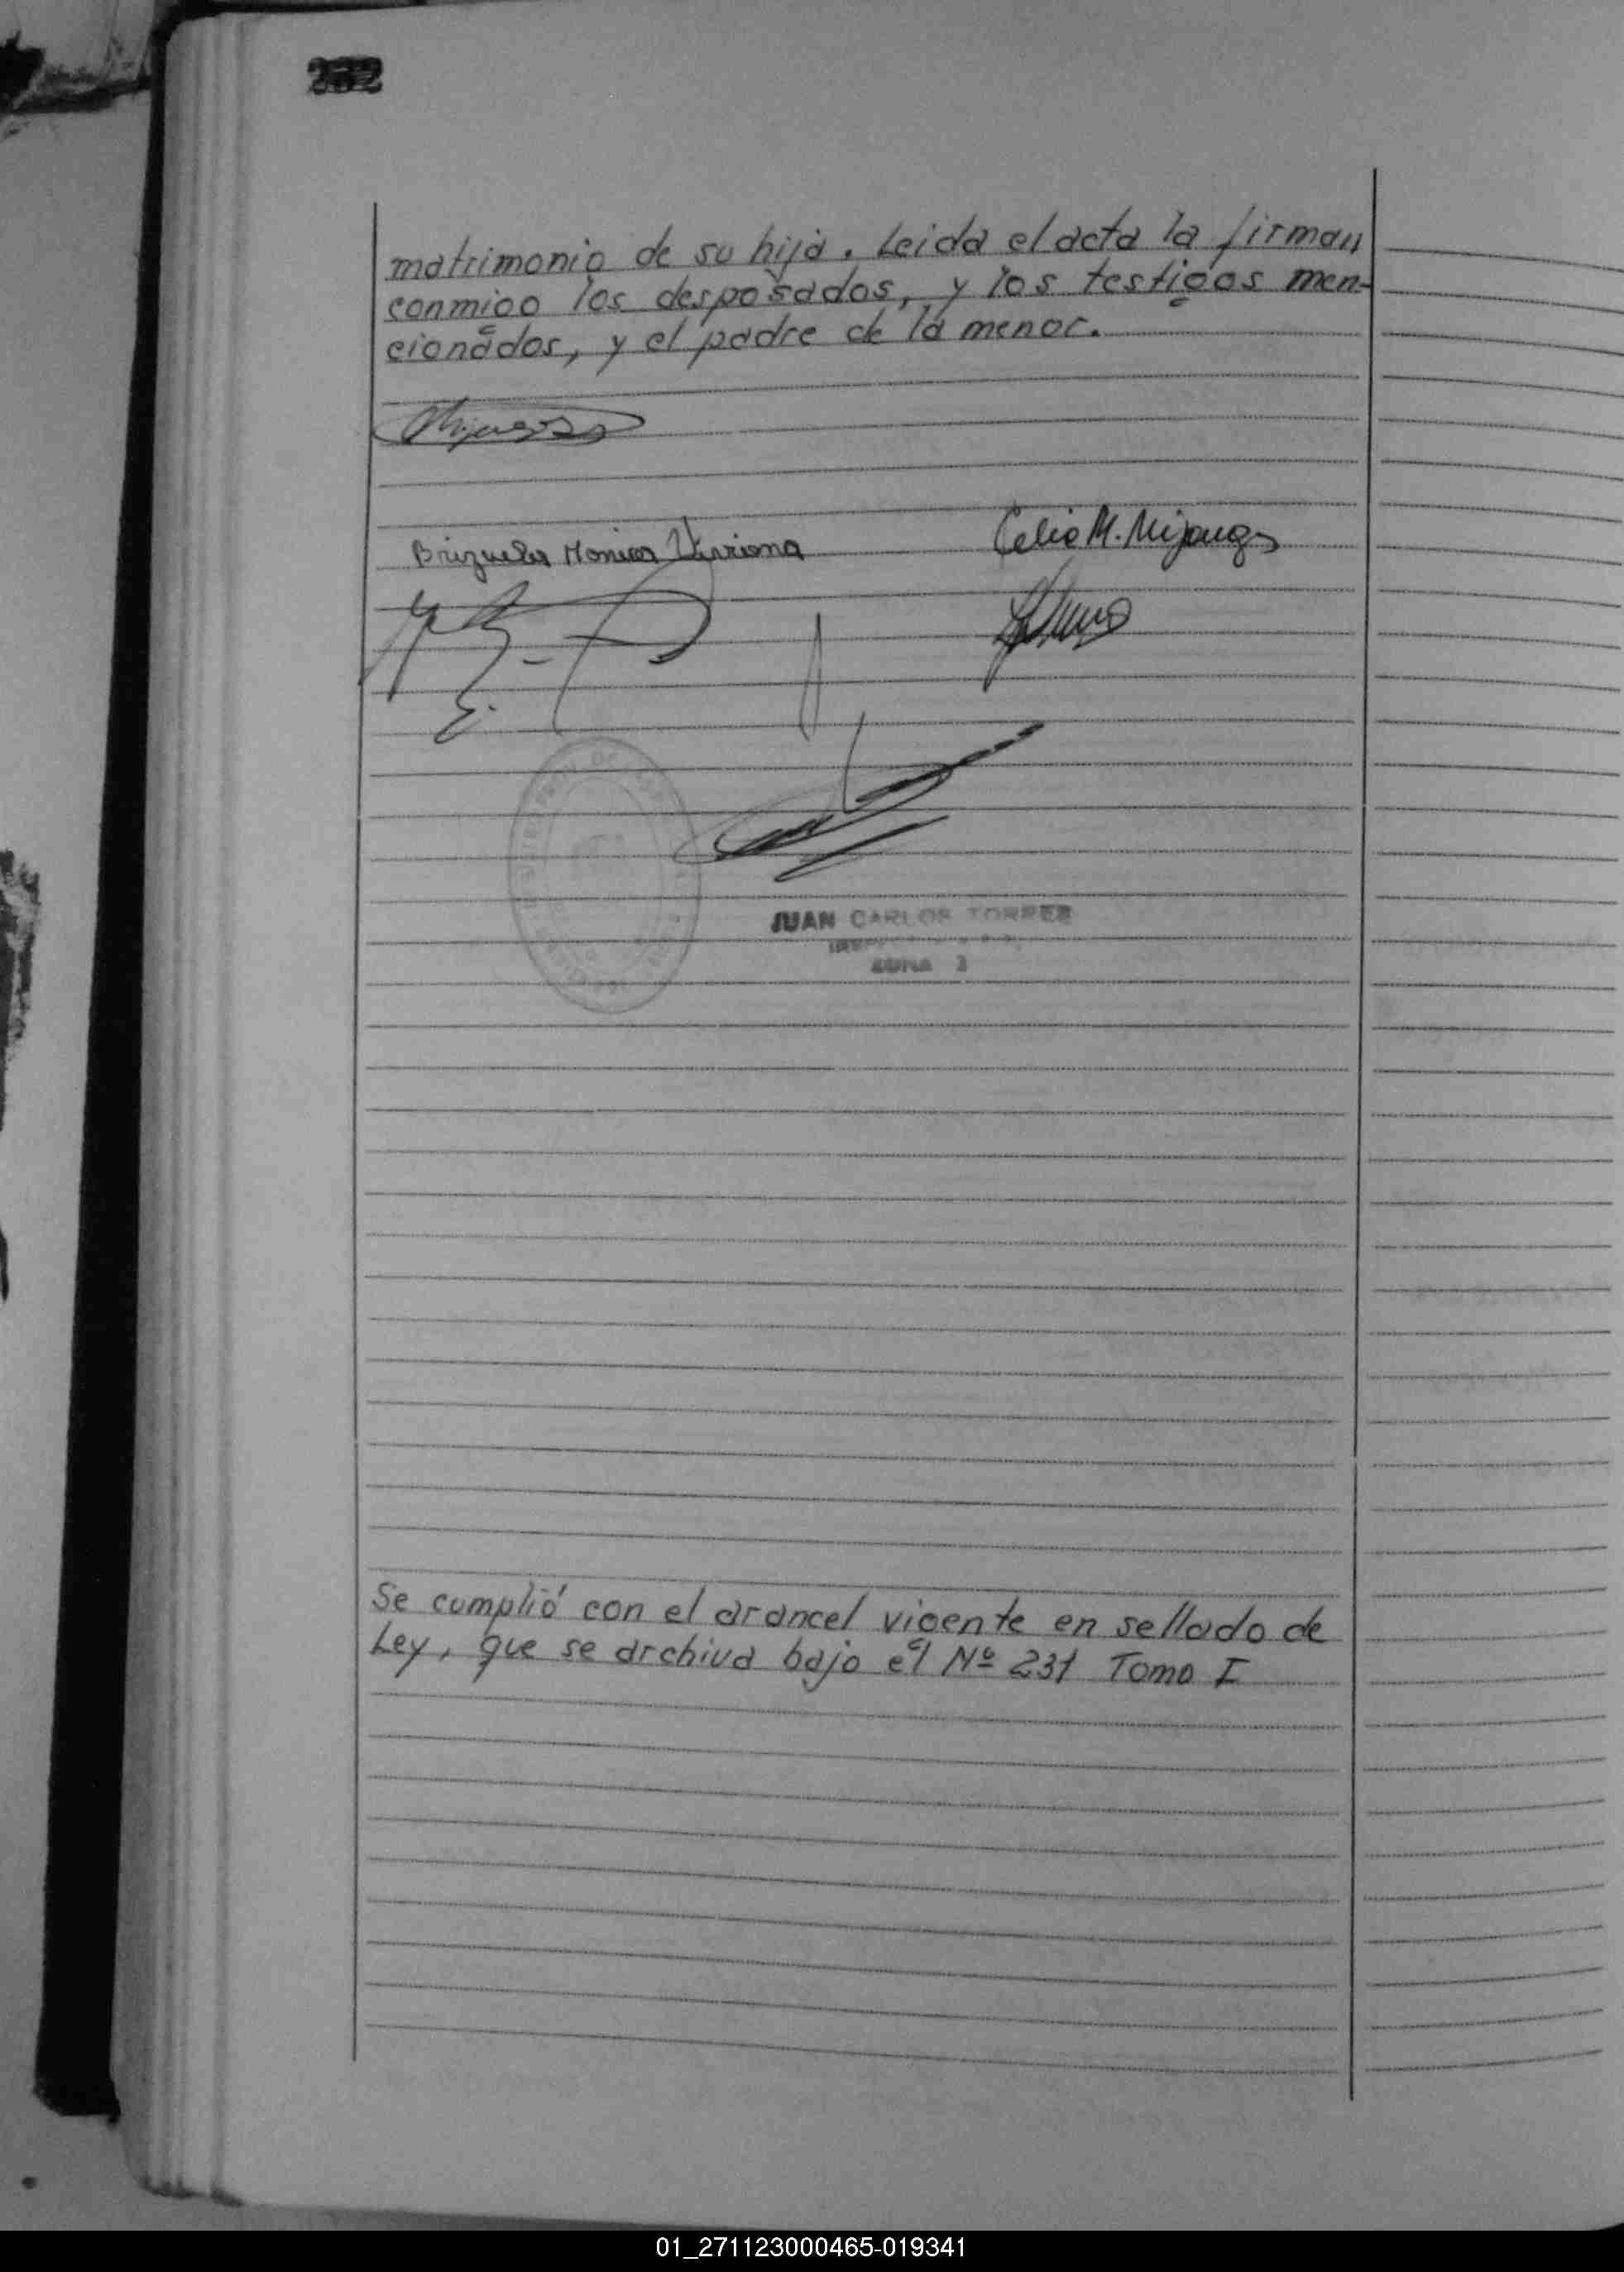 matrimonio de su hija. Leida el acta la firman
conmigo los desposados, y los testigos men-
cionados, y el padre de la menor.
Brizuela Monica Viviana
Celia M. Mijangos
JUAN CARLOS TORRES
ZONA
Se cumplió con el arancel vigente en sellado de
Ley, que se archiva bajo el Nº 231 Tomo I
01_271123000465-019341